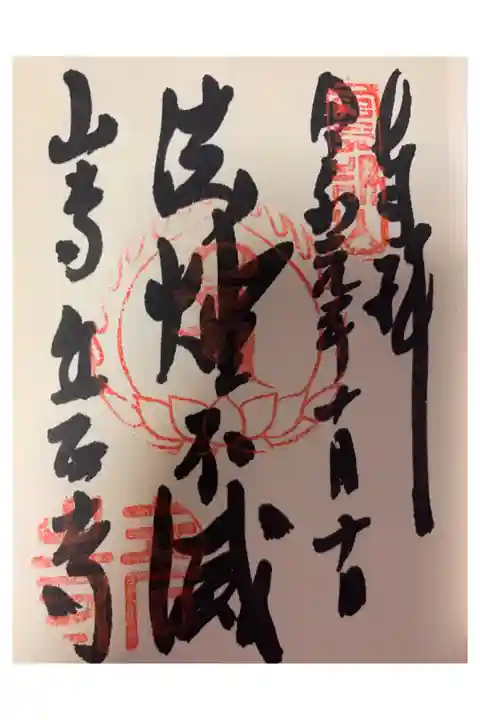 順拝
令和元年十月十日
法燈不滅
山寺立石寺